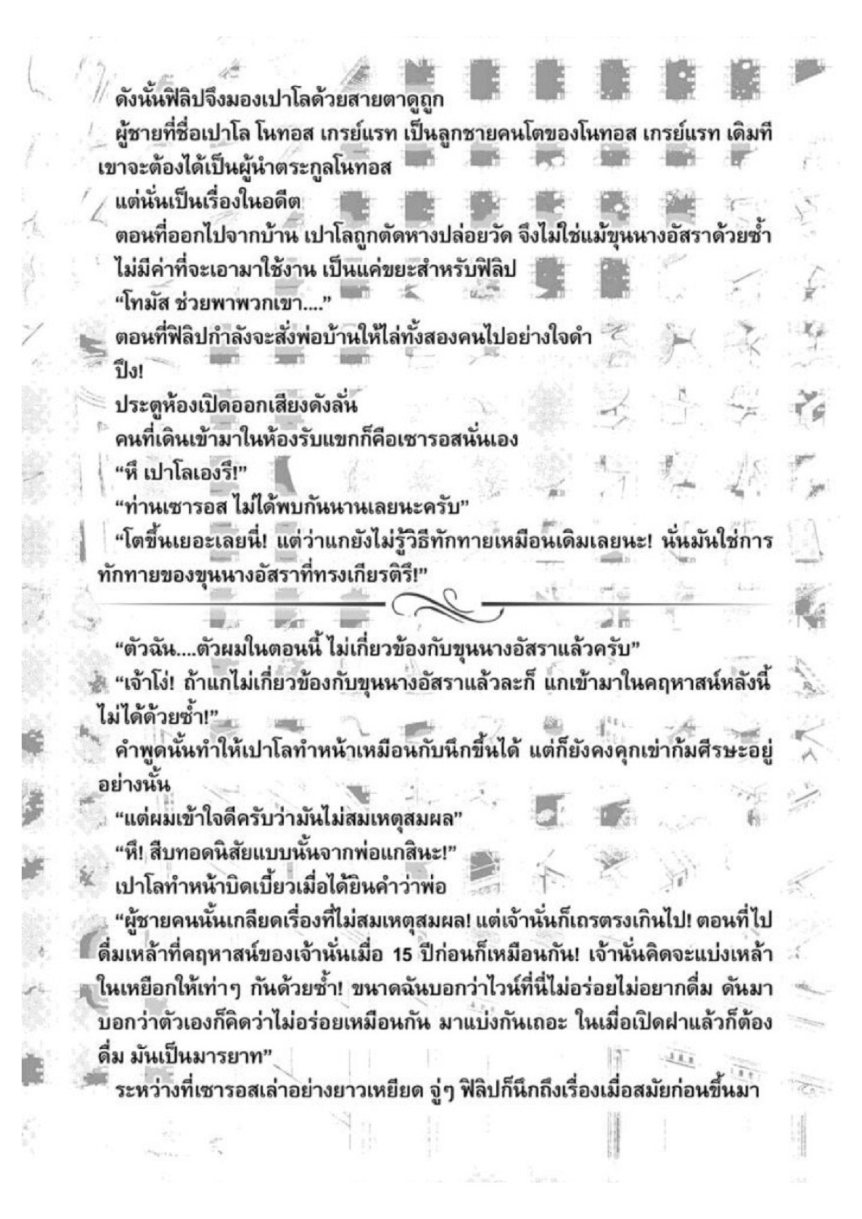 ดังนั้นฟิลิปจึงมองเปาโลด้วยสายตาดูถูก
ผู้ชายที่ชื่อเปาโล โนทอส เกรย์แรท เป็นลูกชายคนโตของโนทอส เกรย์แรท เดิมที
เขาจะต้องได้เป็นผู้นำตระกูลโนทอส
แต่นั่นเป็นเรื่องในอดีต
ตอนที่ออกไปจากบ้าน เปาโลถูกตัดหางปล่อยวัด จึงไม่ใช่แม้ขุนนางอัสราด้วยซ้ำ
ไม่มีค่าที่จะเอามาใช้งาน เป็นแค่ขยะสำหรับฟิลิป
“โทมัส ช่วยพาพวกเขา....”
ตอนที่ฟิลิปกำลังจะสั่งพ่อบ้านให้ไล่ทั้งสองคนไปอย่างใจดำ
ปึง!
ประตูห้องเปิดออกเสียงดังลั่น
คนที่เดินเข้ามาในห้องรับแขกก็คือเซารอสนั่นเอง
“หึ เปาโลเองรึ!”
“ท่านเซารอส ไม่ได้พบกันนานเลยนะครับ”
“โตขึ้นเยอะเลยนี่! แต่ว่าแกยังไม่รู้วิธีทักทายเหมือนเดิมเลยนะ! นั่นมันใช่การ
ทักทายของขุนนางอัสราที่ทรงเกียรติรึ!”
“ตัวฉัน....ตัวผมในตอนนี้ ไม่เกี่ยวข้องกับขุนนางอัสราแล้วครับ”
“เจ้าโง่! ถ้าแกไม่เกี่ยวข้องกับขุนนางอัสราแล้วละก็ แกเข้ามาในคฤหาสน์หลังนี้
ไม่ได้ด้วยซ้ำ!”
คำพูดนั้นทำให้เปาโลทำหน้าเหมือนกับนึกขึ้นได้ แต่ก็ยังคงคุกเข่าก้มศีรษะอยู่
อย่างนั้น
“แต่ผมเข้าใจดีครับว่ามันไม่สมเหตุสมผล”
“หึ! สืบทอดนิสัยแบบนั้นจากพ่อแกสินะ!”
เปาโลทำหน้าบิดเบี้ยวเมื่อได้ยินคำว่าพ่อ
“ผู้ชายคนนั้นเกลียดเรื่องที่ไม่สมเหตุสมผล! แต่เจ้านั่นก็เถรตรงเกินไป! ตอนที่ไป
ดื่มเหล้าที่คฤหาสน์ของเจ้านั่นเมื่อ 15 ปีก่อนก็เหมือนกัน! เจ้านั่นคิดจะแบ่งเหล้า
ในเหยือกให้เท่าๆ กันด้วยซ้ำ! ขนาดฉันบอกว่าไวน์ที่นี่ไม่อร่อยไม่อยากดื่ม ดันมา
บอกว่าตัวเองก็คิดว่าไม่อร่อยเหมือนกัน มาแบ่งกันเถอะ ในเมื่อเปิดฝาแล้วก็ต้อง
ดื่ม มันเป็นมารยาท”
ระหว่างที่เซารอสเล่าอย่างยาวเหยียด จู่ๆ ฟิลิปก็นึกถึงเรื่องเมื่อสมัยก่อนขึ้นมา